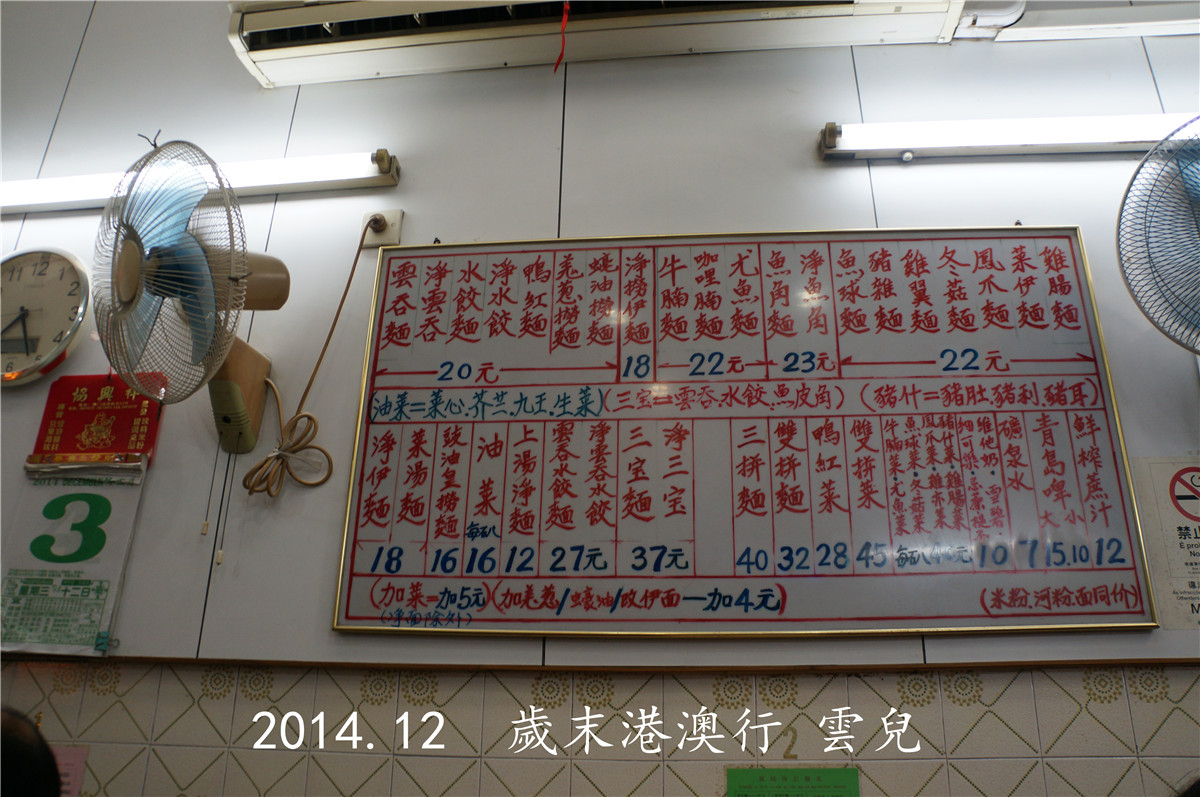 雲吞麵
淨雲吞
水餃麵
淨水餃
鴨紅麵
羗蔥撈麵
蠔油撈麵
淨撈伊麵
牛腩麵
咖哩腩麵
尤魚麵
魚角麵
淨魚角
魚球麵
豬雜麵
雞翼麵
冬菇麵
鳳爪麵
菜伊麵
雞腸麵
20元 18 22元 23元 22元
(油菜=菜心.芥兰.九王.生菜)(三宝=雲吞.水餃.魚皮角) (豬什=豬肚.豬利.豬耳)
淨伊麵
菜湯麵
豉油皇撈麵
油菜 每百八
上湯淨麵
雲吞水餃麵
淨雲吞水餃
三宝麵
淨三宝
三拼麵
雙拼麵
鴨紅菜
雙拼菜
牛腩菜·尤魚菜
魚球菜·冬菇菜
礦泉水
青島啤 大 小
鮮榨蔗汁
18 16 16 12 27元 37元 40 32 28 45 10 7 15.10 12
(加菜=加5元)(加羗蔥/蠔油/改伊面一加4元) (米粉.河粉.面同价)
(淨面除外)
協興祥
2014 DECEMBER
3
星期三 十二日
禁止
2
2014.12 歲末港澳行 雲兒